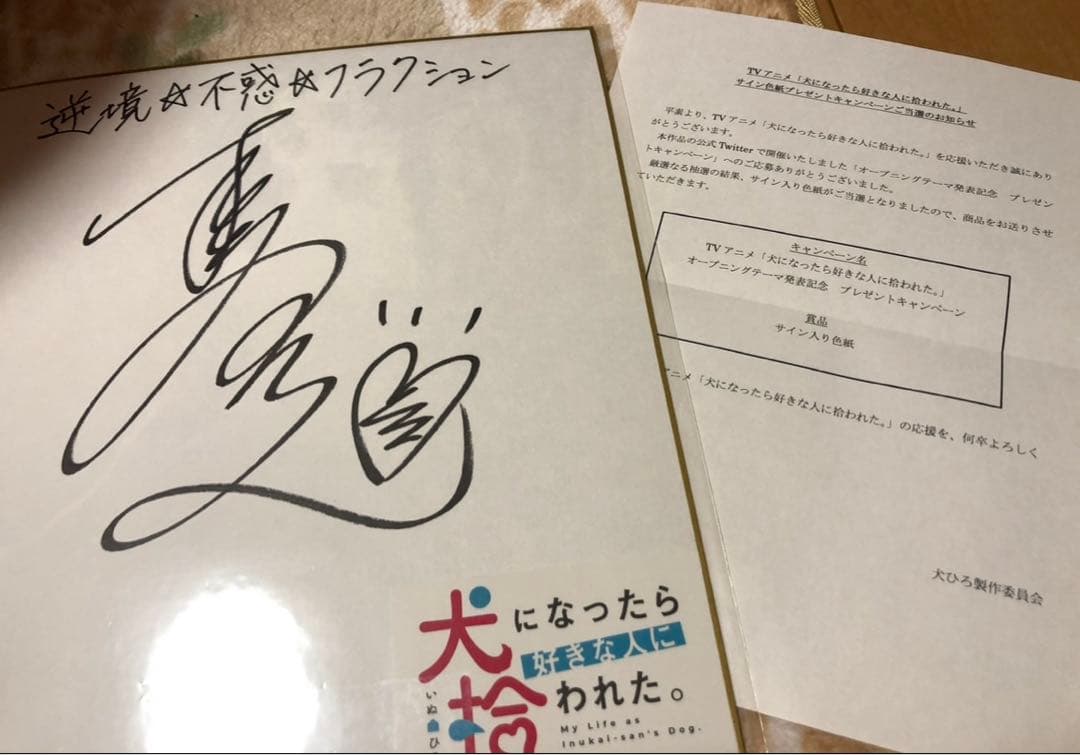 逆境☆不惑☆フラクション
犬になったら
好きな人に
拾われた。
いぬひ
My Life as
Inukai-san's Dog.
TVアニメ「犬になったら好きな人に拾われた。」
サイン色紙プレゼントキャンペーンご当選のお知らせ
平素より、TVアニメ「犬になったら好きな人に拾われた。」を応援いただき誠にあり
がとうございます。
本作品の公式Twitterで開催いたしました「オープニングテーマ発表記念　プレゼン
トキャンペーン」へのご応募ありがとうございました。
厳選なる抽選の結果、サイン入り色紙がご当選となりましたので、商品をお送りさせ
ていただきます。
キャンペーン名
TVアニメ「犬になったら好きな人に拾われた。」
オープニングテーマ発表記念　プレゼントキャンペーン
賞品
サイン入り色紙
ニメ「犬になったら好きな人に拾われた。」の応援を、何卒よろしく
犬ひろ製作委員会